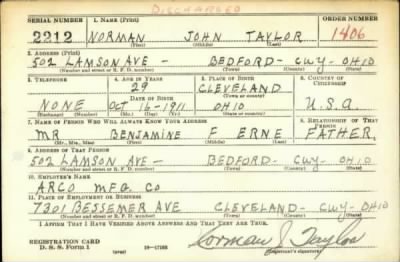 DISCHARGED
SERIAL NUMBER 1. NAME (Print) ORDER NUMBER
2212 NORMAN JOHN TAYLOR 1406
(First) (Middle) (Last)
2. ADDRESS (Print)
502 LAMSON AVE - BEDFORD - CUY - OHIO
(Number and street or R. F. D. number) (Town) (County) (State)
3. TELEPHONE 4. AGE IN YEARS 5. PLACE OF BIRTH 6. COUNTRY OF CITIZENSHIP
29 CLEVELAND
(Town or county)
DATE OF BIRTH
NONE OCT 16-1911 OHIO U.S.A.
(Exchange) (Number) (Mo.) (Day) (Yr.) (State or country)
7. NAME OF PERSON WHO WILL ALWAYS KNOW YOUR ADDRESS 8. RELATIONSHIP OF THAT PERSON
MR BENJAMINE F ERNE FATHER
(Mr., Mrs., Miss) (First) (Middle) (Last)
9. ADDRESS OF THAT PERSON
502 LAMSON AVE - BEDFORD - CUY - OHIO
(Number and street or R. F. D. number) (Town) (County) (State)
10. EMPLOYER'S NAME
ARCO MFG. CO
11. PLACE OF EMPLOYMENT OR BUSINESS
7301 BESSEMER AVE CLEVELAND - CUY - OHIO
(Number and street or R. F. D. number) (Town) (County) (State)
I AFFIRM THAT I HAVE VERIFIED ABOVE ANSWERS AND THAT THEY ARE TRUE.
REGISTRATION CARD
D. S. S. Form 1 (over) 16-17105 Norman J. Taylor
(Registrant's signature)